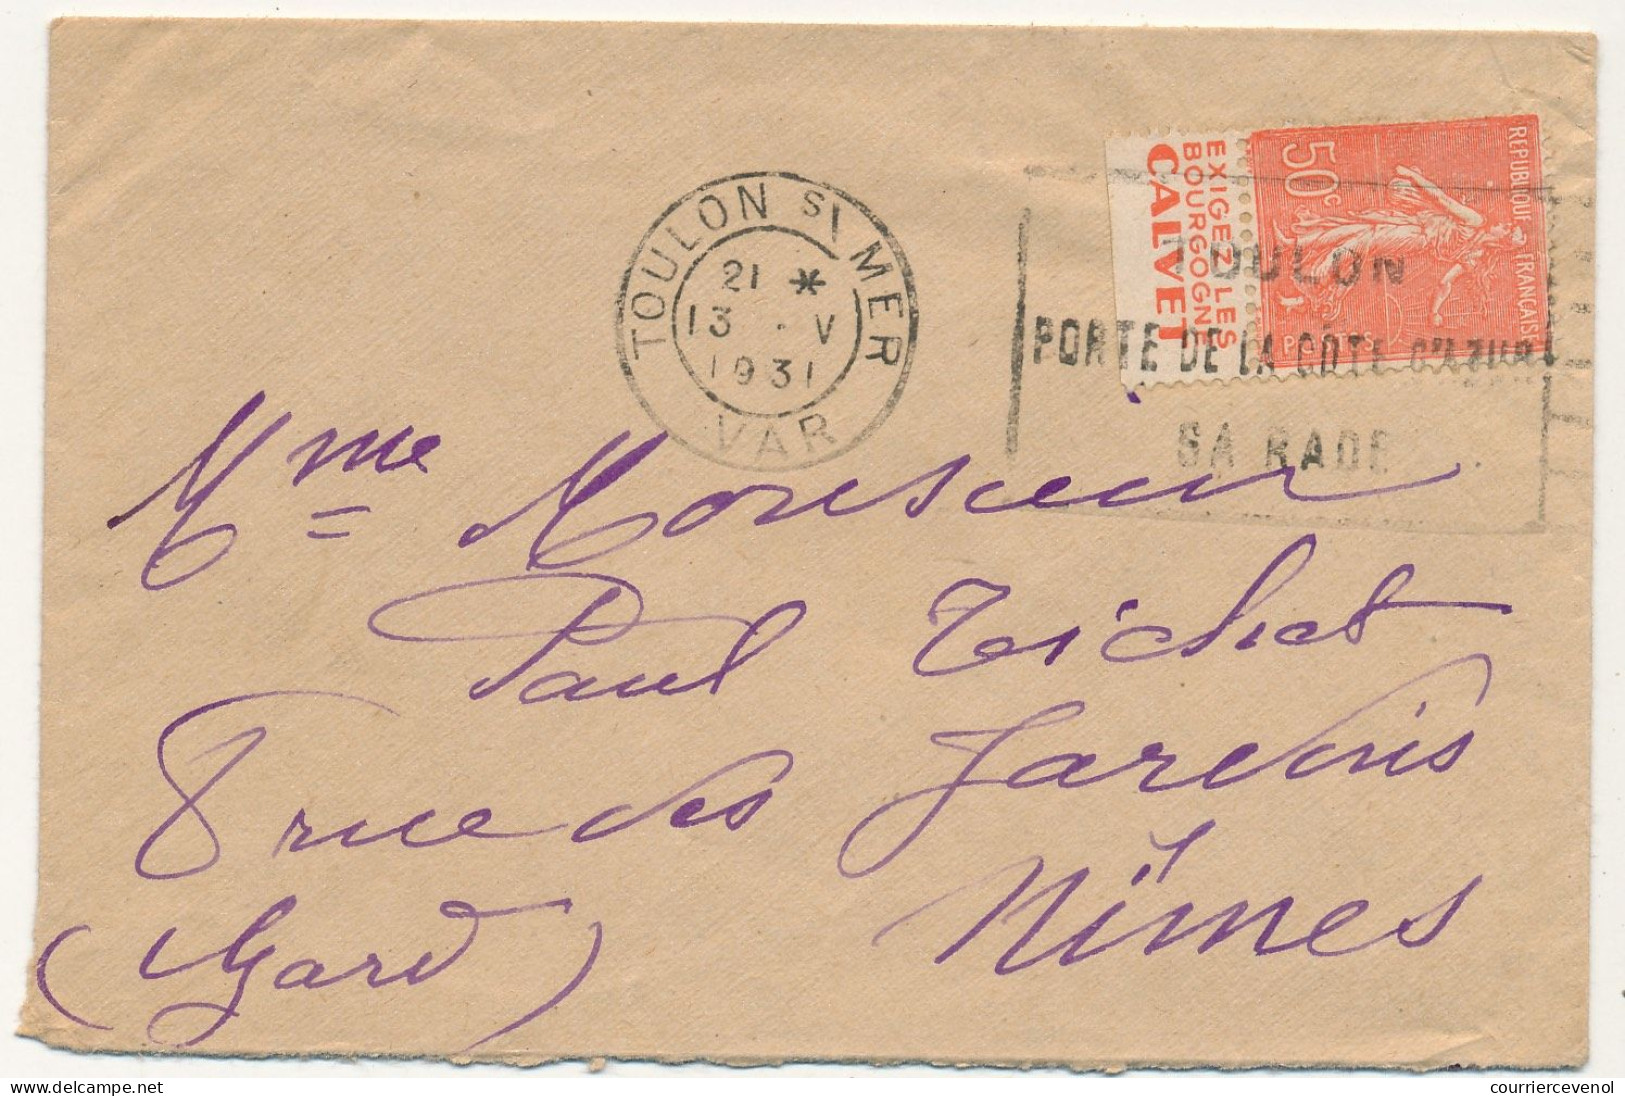 TOULON S/ MER
21 *
13 . V
1931
VAR
EXIGEZ LES
BOURGOGNE
CALVET
50c
REPUBLIQUE FRANÇAISE
POSTES
TOULON
PORTE DE LA COTE D'AZUR
SA RADE
Mme = Monsieur
Paul
8 rue des Jardins
Nîmes
(Gard)
courriercevenol
© delcampe.net